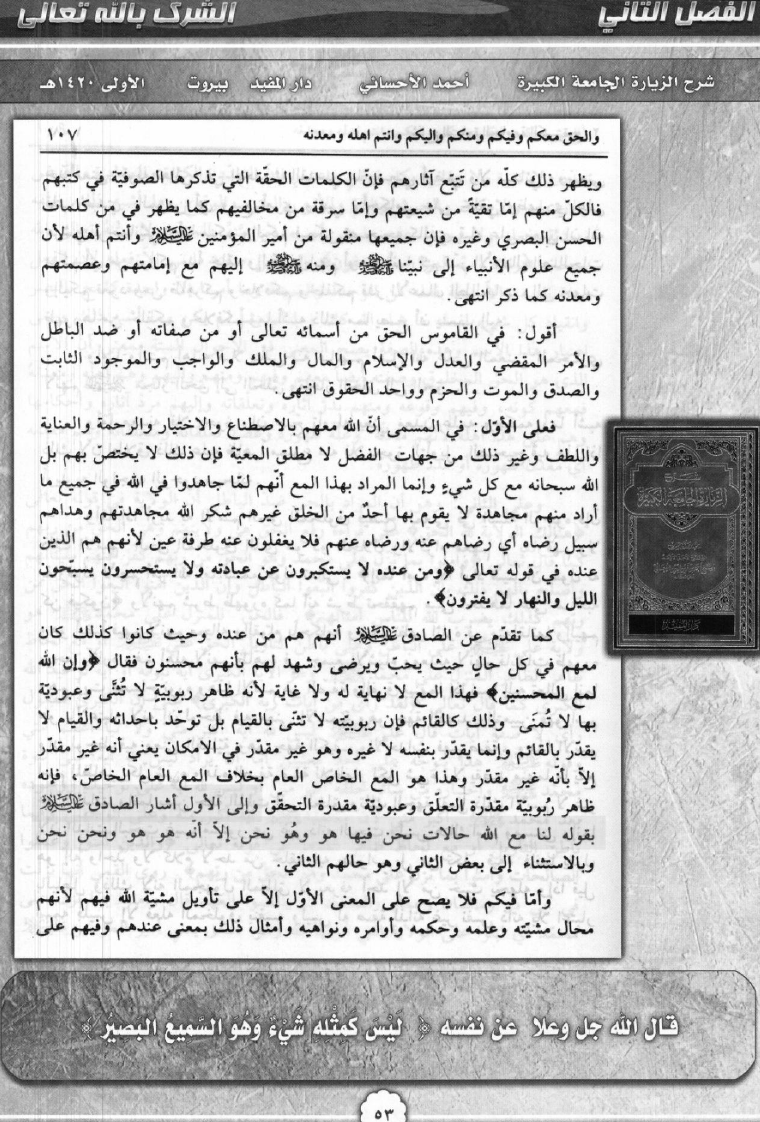 الفصل الثاني
الشرك بالله تعالى
شرح الزيارة الجامعة الكبيرة أحمد الأحسائي دار المفيد بيروت الأولى ١٤٢٠هـ
والحق معكم وفيكم ومنكم واليكم وانتم اهله ومعدنه ١٠٧
ويظهر ذلك كلّه من تَتبّع آثارهم فإنّ الكلمات الحقّة التي تذكرها الصوفيّة في كتبهم
فالكلّ منهم إمّا تقيّةً من شيعتهم وإمّا سرقة من مخالفيهم كما يظهر في من كلمات
الحسن البصري وغيره فإن جميعها منقولة من أمير المؤمنين عليه السلام وأنتم أهله لأن
جميع علوم الأنبياء إلى نبيّنا ﷺ ومنه ﷺ إليهم مع إمامتهم وعصمتهم
ومعدنه كما ذكر انتهى.
أقول: في القاموس الحق من أسمائه تعالى أو من صفاته أو ضد الباطل
والأمر المقضي والعدل والإسلام والمال والملك والواجب والموجود الثابت
والصدق والموت والحزم وواحد الحقوق انتهى.
فعلى الأوّل: في المسمى أنّ الله معهم بالاصطناع والاختيار والرحمة والعناية
واللطف وغير ذلك من جهات الفضل لا مطلق المعيّة فإن ذلك لا يختصّ بهم بل
الله سبحانه مع كل شيءٍ وإنما المراد بهذا المع أنّهم لمّا جاهدوا في الله في جميع ما
أراد منهم مجاهدة لا يقوم بها أحدٌ من الخلق غيرهم شكر الله مجاهدتهم وهداهم
سبيل رضاه أي رضاهم عنه ورضاه عنهم فلا يغفلون عنه طرفة عين لأنهم هم الذين
عنده في قوله تعالى ﴿ومن عنده لا يستكبرون عن عبادته ولا يستحسرون يسبّحون
الليل والنهار لا يفترون﴾.
كما تقدّم عن الصادق عليه السلام أنهم هم من عنده وحيث كانوا كذلك كان
معهم في كل حالٍ حيث يحبّ ويرضى وشهد لهم بأنهم محسنون فقال ﴿وإن الله
لمع المحسنين﴾ فهذا المع لا نهاية له ولا غاية لأنه ظاهر ربوبيّةٍ لا تُثنَّى وعبوديّة
بها لا تُمنَى وذلك كالقائم فإن ربوبيّته لا تثنّى بالقيام بل توحّد باحداثه والقيام لا
يقدّر بالقائم وإنما يقدّر بنفسه لا غيره وهو غير مقدّر في الامكان يعني أنه غير مقدّر
إلاّ بأنّه غير مقدّر وهذا هو المع الخاص العام بخلاف المع العام الخاصّ، فإنه
ظاهر رُبوبيّة مقدّرة التعلّق وعبوديّة مقدرة التحقّق وإلى الأول أشار الصادق عليه السلام
بقوله لنا مع الله حالات نحن فيها هو وهُو نحن إلاّ أنّه هو هو ونحن نحن
وبالاستثناء إلى بعض الثاني وهو حالهم الثاني.
وأمّا فيكم فلا يصح على المعنى الأوّل إلاّ على تأويل مشيّة الله فيهم لأنهم
محال مشيّته وعلمه وحكمه وأوامره ونواهيه وأمثال ذلك بمعنى عندهم وفيهم على
شرح
الزيارة الجامعة الكبيرة
قال الله جل وعلا عن نفسه ﴿ ليْسَ كَمِثْله شَيْءٌ وَهُوَ السَّميعُ البَصيْر ﴾
٥٣